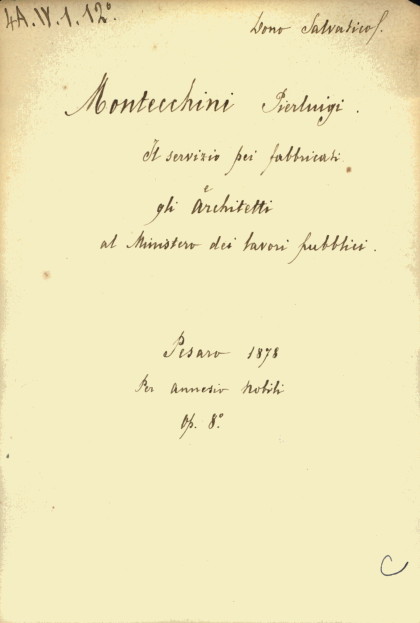 4A.IV.1.12°.
Dono Salvatico
Montecchini Pierluigi.
Il servizio pei fabbricati
e
gli Architetti
al Ministero dei lavori pubblici.
Pesaro 1878
Per Annesio Nobili
Op. 8°.
C